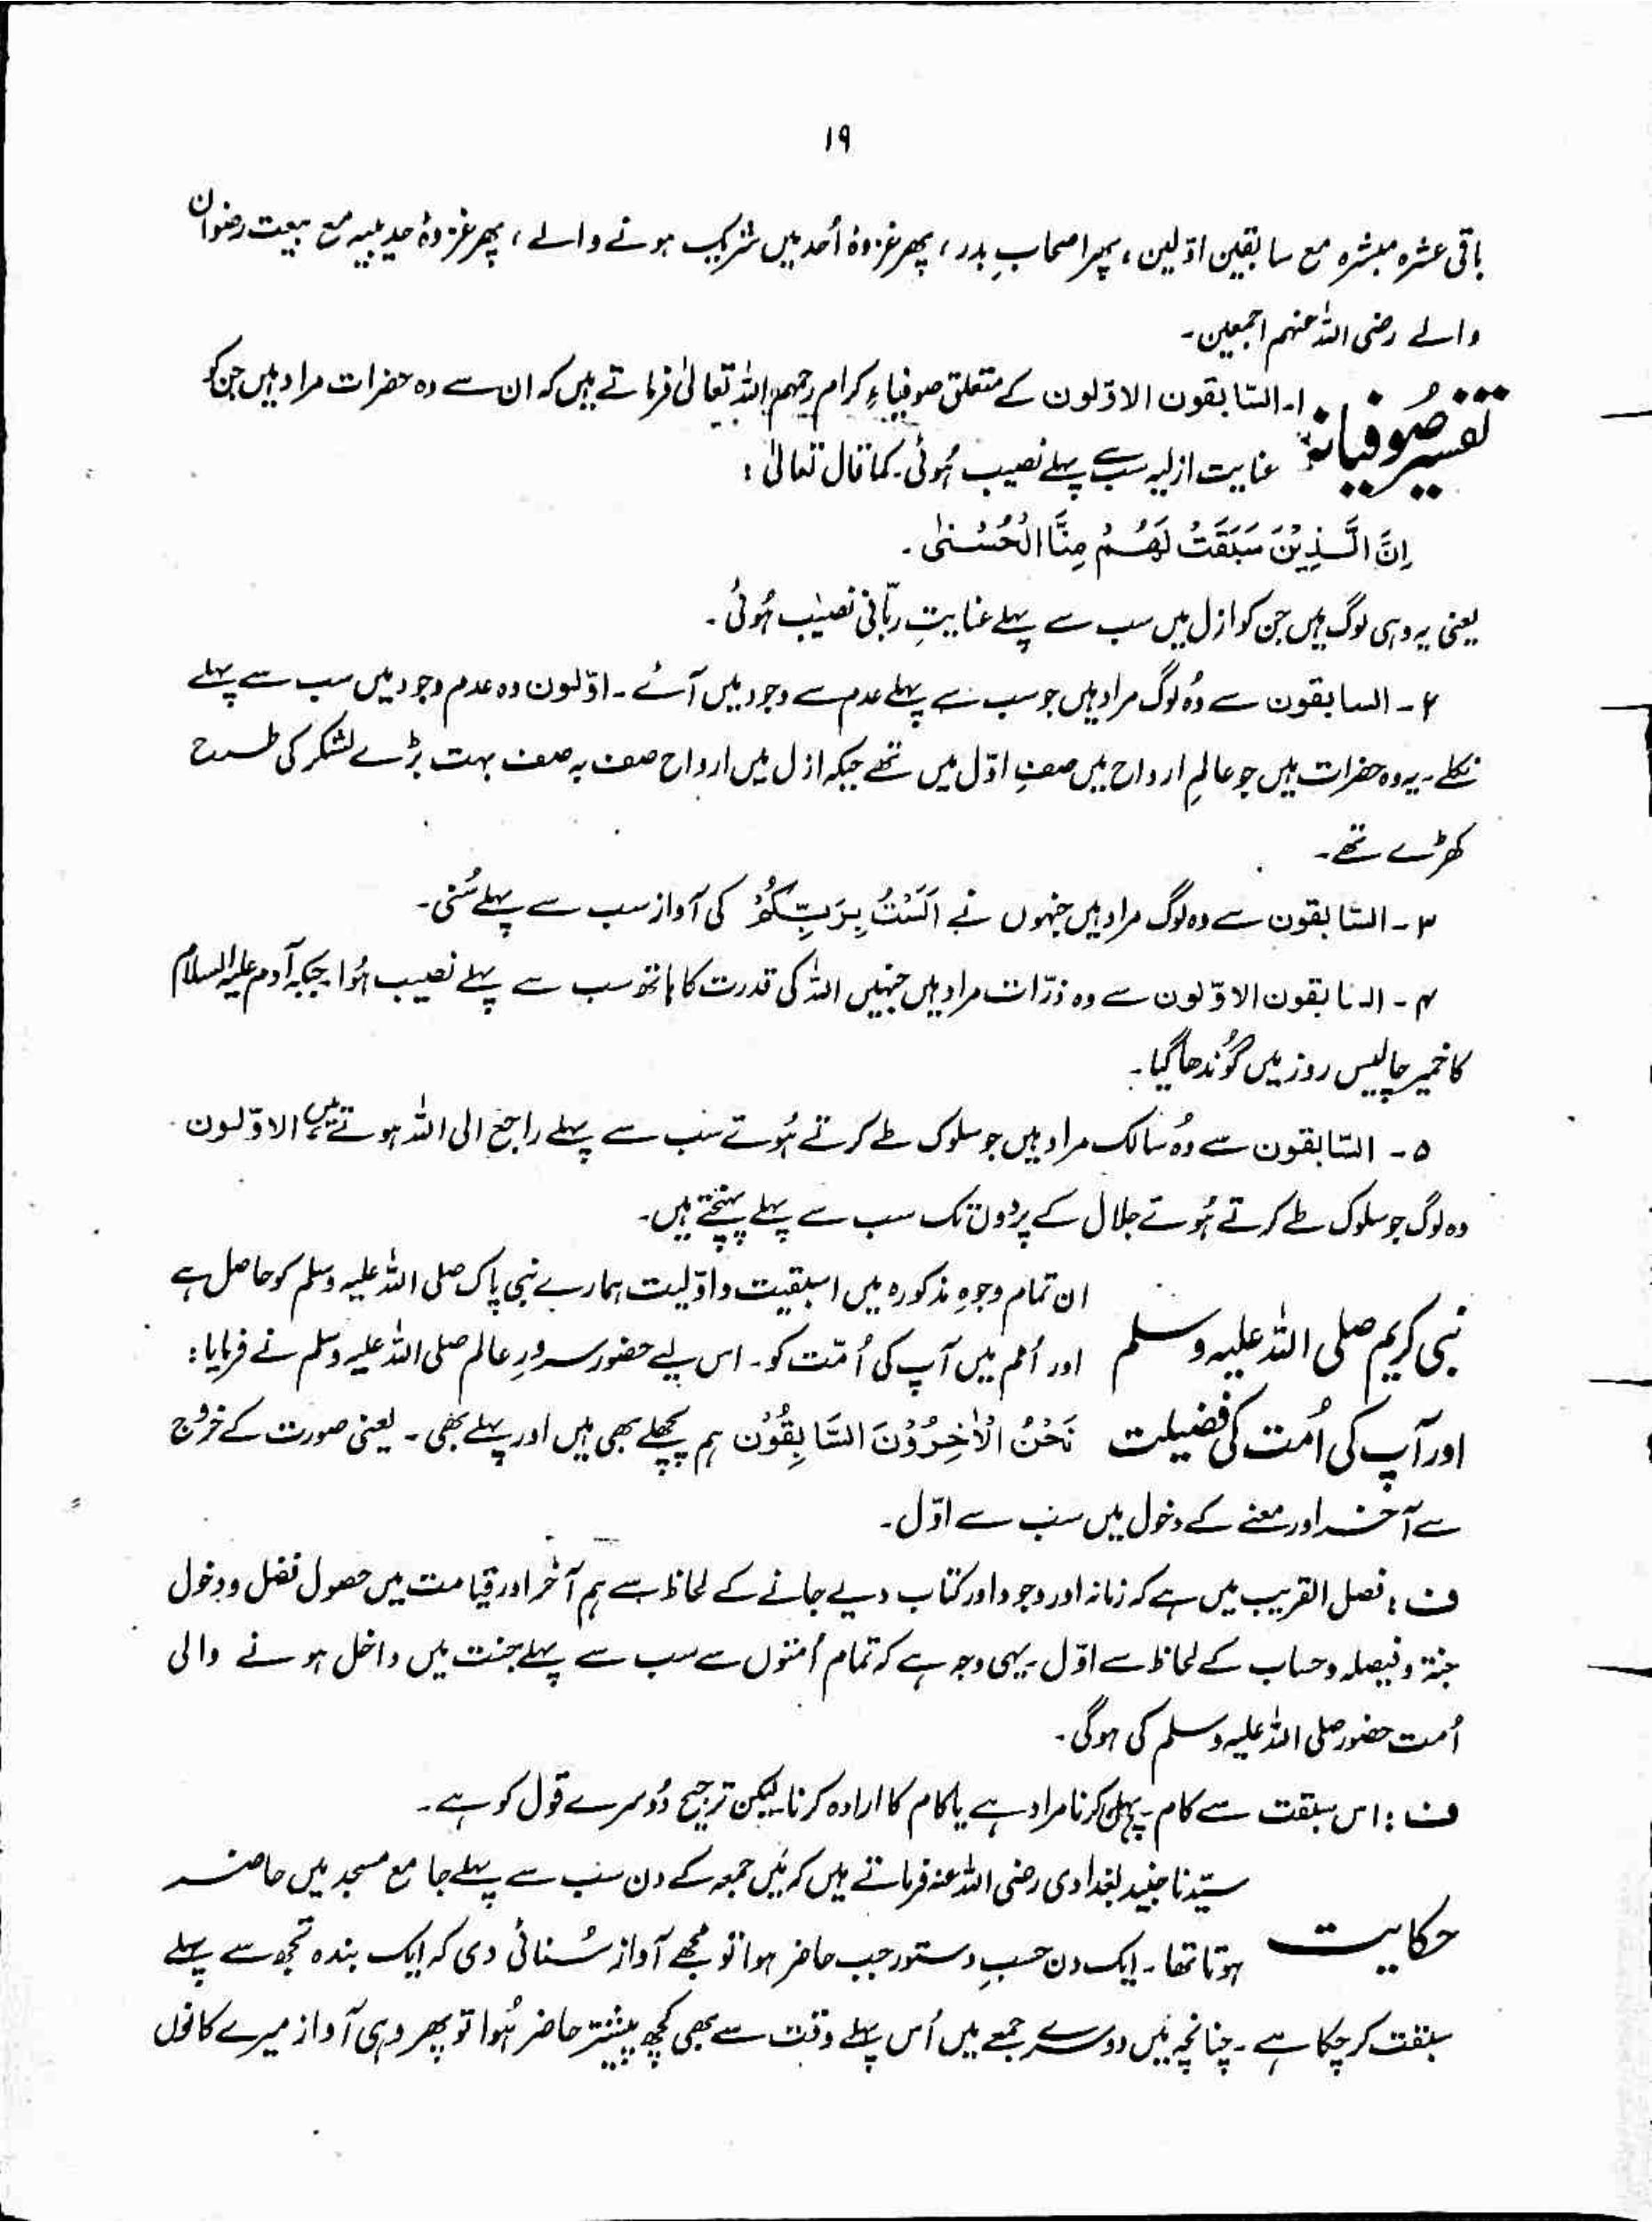 ۱۹
باقی عشرہ مبشرہ مع سابقین اوّلین، پھر اصحابِ بدر، پھر غزوۂ اُحد میں شریک ہونے والے، پھر غزوۂ حدیبیہ مع بیعت رضوان
والے رضی اللہ عنہم اجمعین۔
تفسیر صُوفیانہ ۱۔ السّابقون الاوّلون کے متعلق صوفیاءِ کرام رحمہم اللہ تعالیٰ فرماتے ہیں کہ ان سے وہ حضرات مراد ہیں جن کو
عنایت ازلیہ سب سے پہلے نصیب ہُوئی۔ کما قال تعالیٰ:
اِنَّ الَّذِیْنَ سَبَقَتْ لَھُمْ مِنَّا الْحُسْنٰی۔
یعنی یہ وہی لوگ ہیں جن کو ازل میں سب سے پہلے عنایتِ ربّانی نصیب ہُوئی۔
۲۔ السابقون سے وُہ لوگ مراد ہیں جو سب سے پہلے عدم سے وجود میں آئے۔ اوّلون وہ عدم وجود میں سب سے پہلے
نکلے۔ یہ وہ حضرات ہیں جو عالمِ ارواح میں صفِ اوّل میں تھے جبکہ ازل میں ارواح صف بہ صف بہت بڑے لشکر کی طرح
کھڑے تھے۔
۳۔ السّابقون سے وہ لوگ مراد ہیں جنہوں نے اَلَسْتُ بِرَبِّکُمْ کی آواز سب سے پہلے سُنی۔
۴۔ السابقون الاوّلون سے وہ ذرّات مراد ہیں جنہیں اللہ کی قدرت کا ہاتھ سب سے پہلے نصیب ہُوا جبکہ آدم علیہ السلام
کا خمیر چالیس روز میں گُوندھا گیا۔
۵۔ السّابقون سے وُہ سالک مراد ہیں جو سلوک طے کرتے ہُوئے سب سے پہلے راجع الی اللہ ہوتے ہیں الاوّلون
وہ لوگ جو سلوک طے کرتے ہُوئے جلال کے پردوں تک سب سے پہلے پہنچتے ہیں۔
ان تمام وجوہِ مذکورہ میں اسبقیت و اوّلیت ہمارے نبی پاک صلی اللہ علیہ وسلم کو حاصل ہے
نبی کریم صلی اللہ علیہ وسلم اور اُمم میں آپ کی اُمّت کو۔ اس لیے حضور سرورِ عالم صلی اللہ علیہ وسلم نے فرمایا:
اور آپ کی اُمت کی فضیلت نَحْنُ الْاٰخِرُوْنَ السَّابِقُوْن ہم پچھلے بھی ہیں اور پہلے بھی۔ یعنی صورت کے خروج
سے آخر اور معنے کے دخول میں سب سے اوّل۔
ف : فصل القریب میں ہے کہ زمانہ اور وجود اور کتاب دیے جانے کے لحاظ سے ہم آخر اور قیامت میں حصول فضل و دخول
جنۃ و فیصلہ و حساب کے لحاظ سے اوّل۔ یہی وجہ ہے کہ تمام اُمتوں سے سب سے پہلے جنت میں داخل ہونے والی
اُمت حضور صلی اللہ علیہ وسلم کی ہوگی۔
ف : اس سبقت سے کام پہلے کرنا مراد ہے یا کام کا ارادہ کرنا۔ لیکن ترجیح دُوسرے قول کو ہے۔
سیّدنا جنید بغدادی رضی اللہ عنہ فرماتے ہیں کہ مَیں جمعہ کے دن سب سے پہلے جامع مسجد میں حاضر
حکایت ہوتا تھا۔ ایک دن حسبِ دستور جب حاضر ہوا تو مجھے آواز سُنائی دی کہ ایک بندہ تجھ سے پہلے
سبقت کر چکا ہے۔ چنانچہ مَیں دوسرے جمعے میں اُس پہلے وقت سے بھی کچھ پیشتر حاضر ہُوا تو پھر وہی آواز میرے کانوں